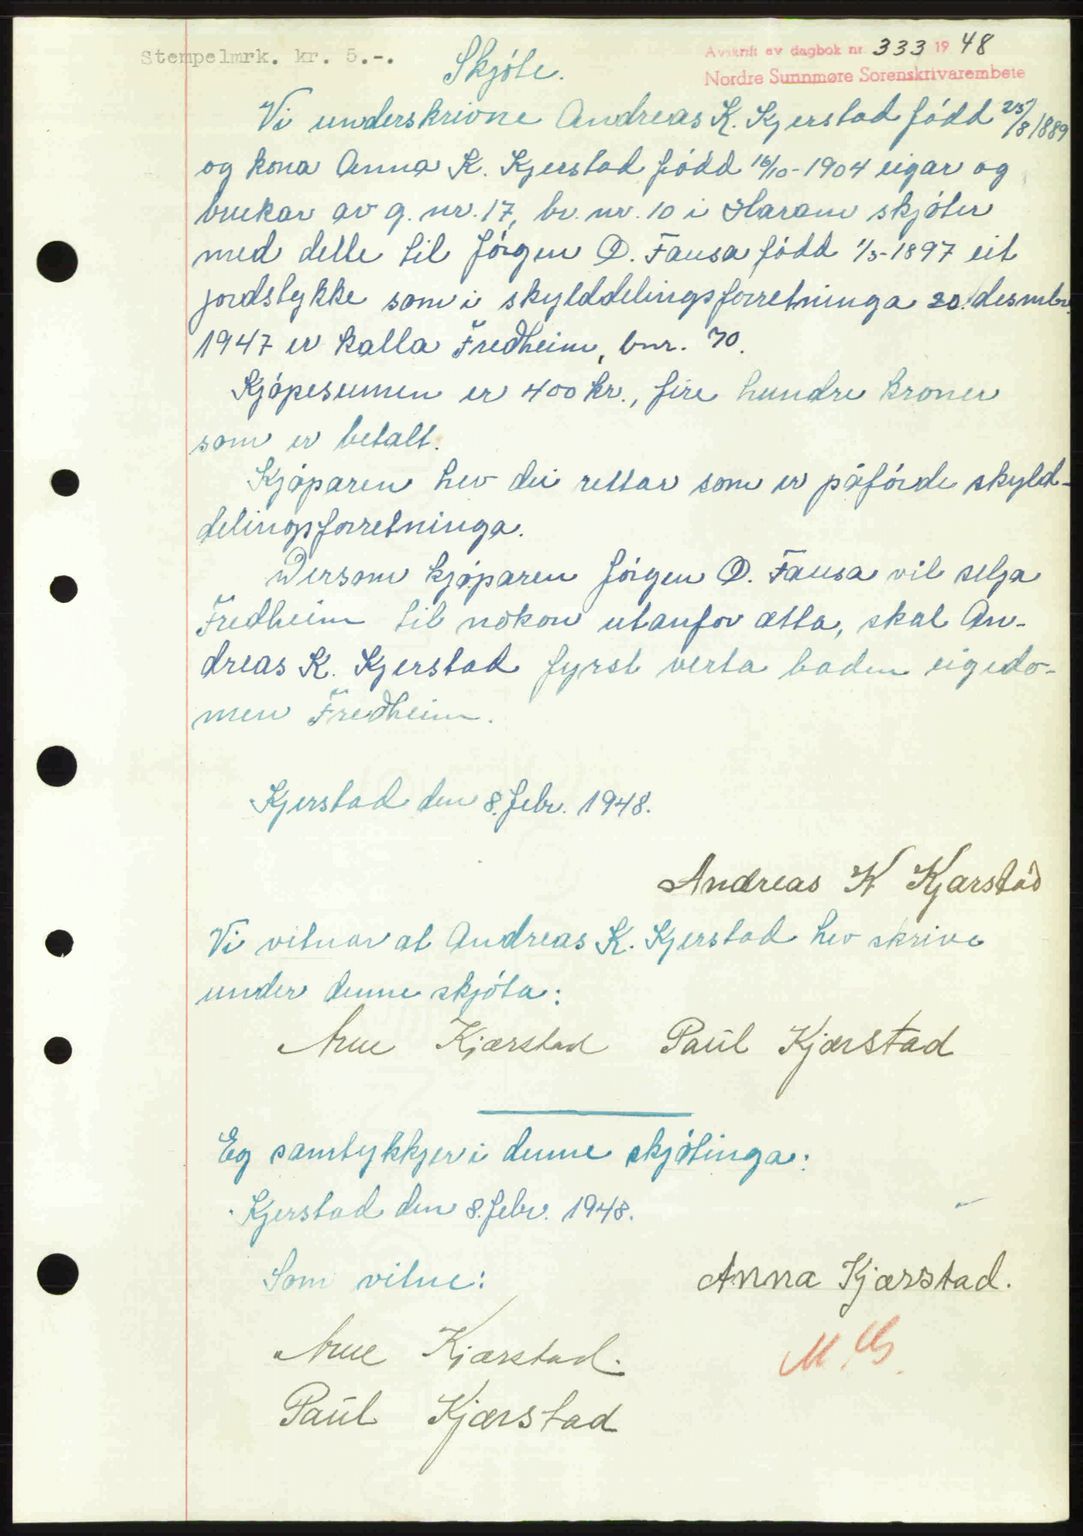 Stempelmrk. kr. 5.-.
Avskrift av dagbok nr. 333 1948
Nordre Sunnmøre Sorenskrivarembete
Skjøte.
Vi underskrivne Andreas K. Kjerstad fødd 25/8 1889
og kona Anna K. Kjerstad fødd 16/10-1904 eigar og
brukar av g. nr. 17, br. nr. 10 i Haram skjøter
med dette til Jørgen O. Fausa fødd 1/5-1897 eit
jordstykke som i skylddelingsforretninga 20. desmbr.
1947 er kalla Fredheim, bnr. 70.
Kjøpesumen er 400 kr., fire hundre kroner
som er betalt.
Kjøparen hev dei rettar som er påførde skyld-
delingsforretninga.
Dersom kjøparen Jørgen O. Fausa vil selja
Fredheim til nokon utanfor ætta, skal An-
dreas K. Kjerstad fyrst verta boden eigedo-
men Fredheim.
Kjerstad den 8. febr. 1948.
Andreas K Kjærstad
Vi vitnar at Andreas K. Kjerstad hev skrive
under denne skjøta:
Arne Kjærstad Paul Kjærstad
Eg samtykkjer i denne skjøtinga:
Kjerstad den 8. febr. 1948.
Som vitne:
Anna Kjærstad.
Arne Kjærstad.
Paul Kjærstad